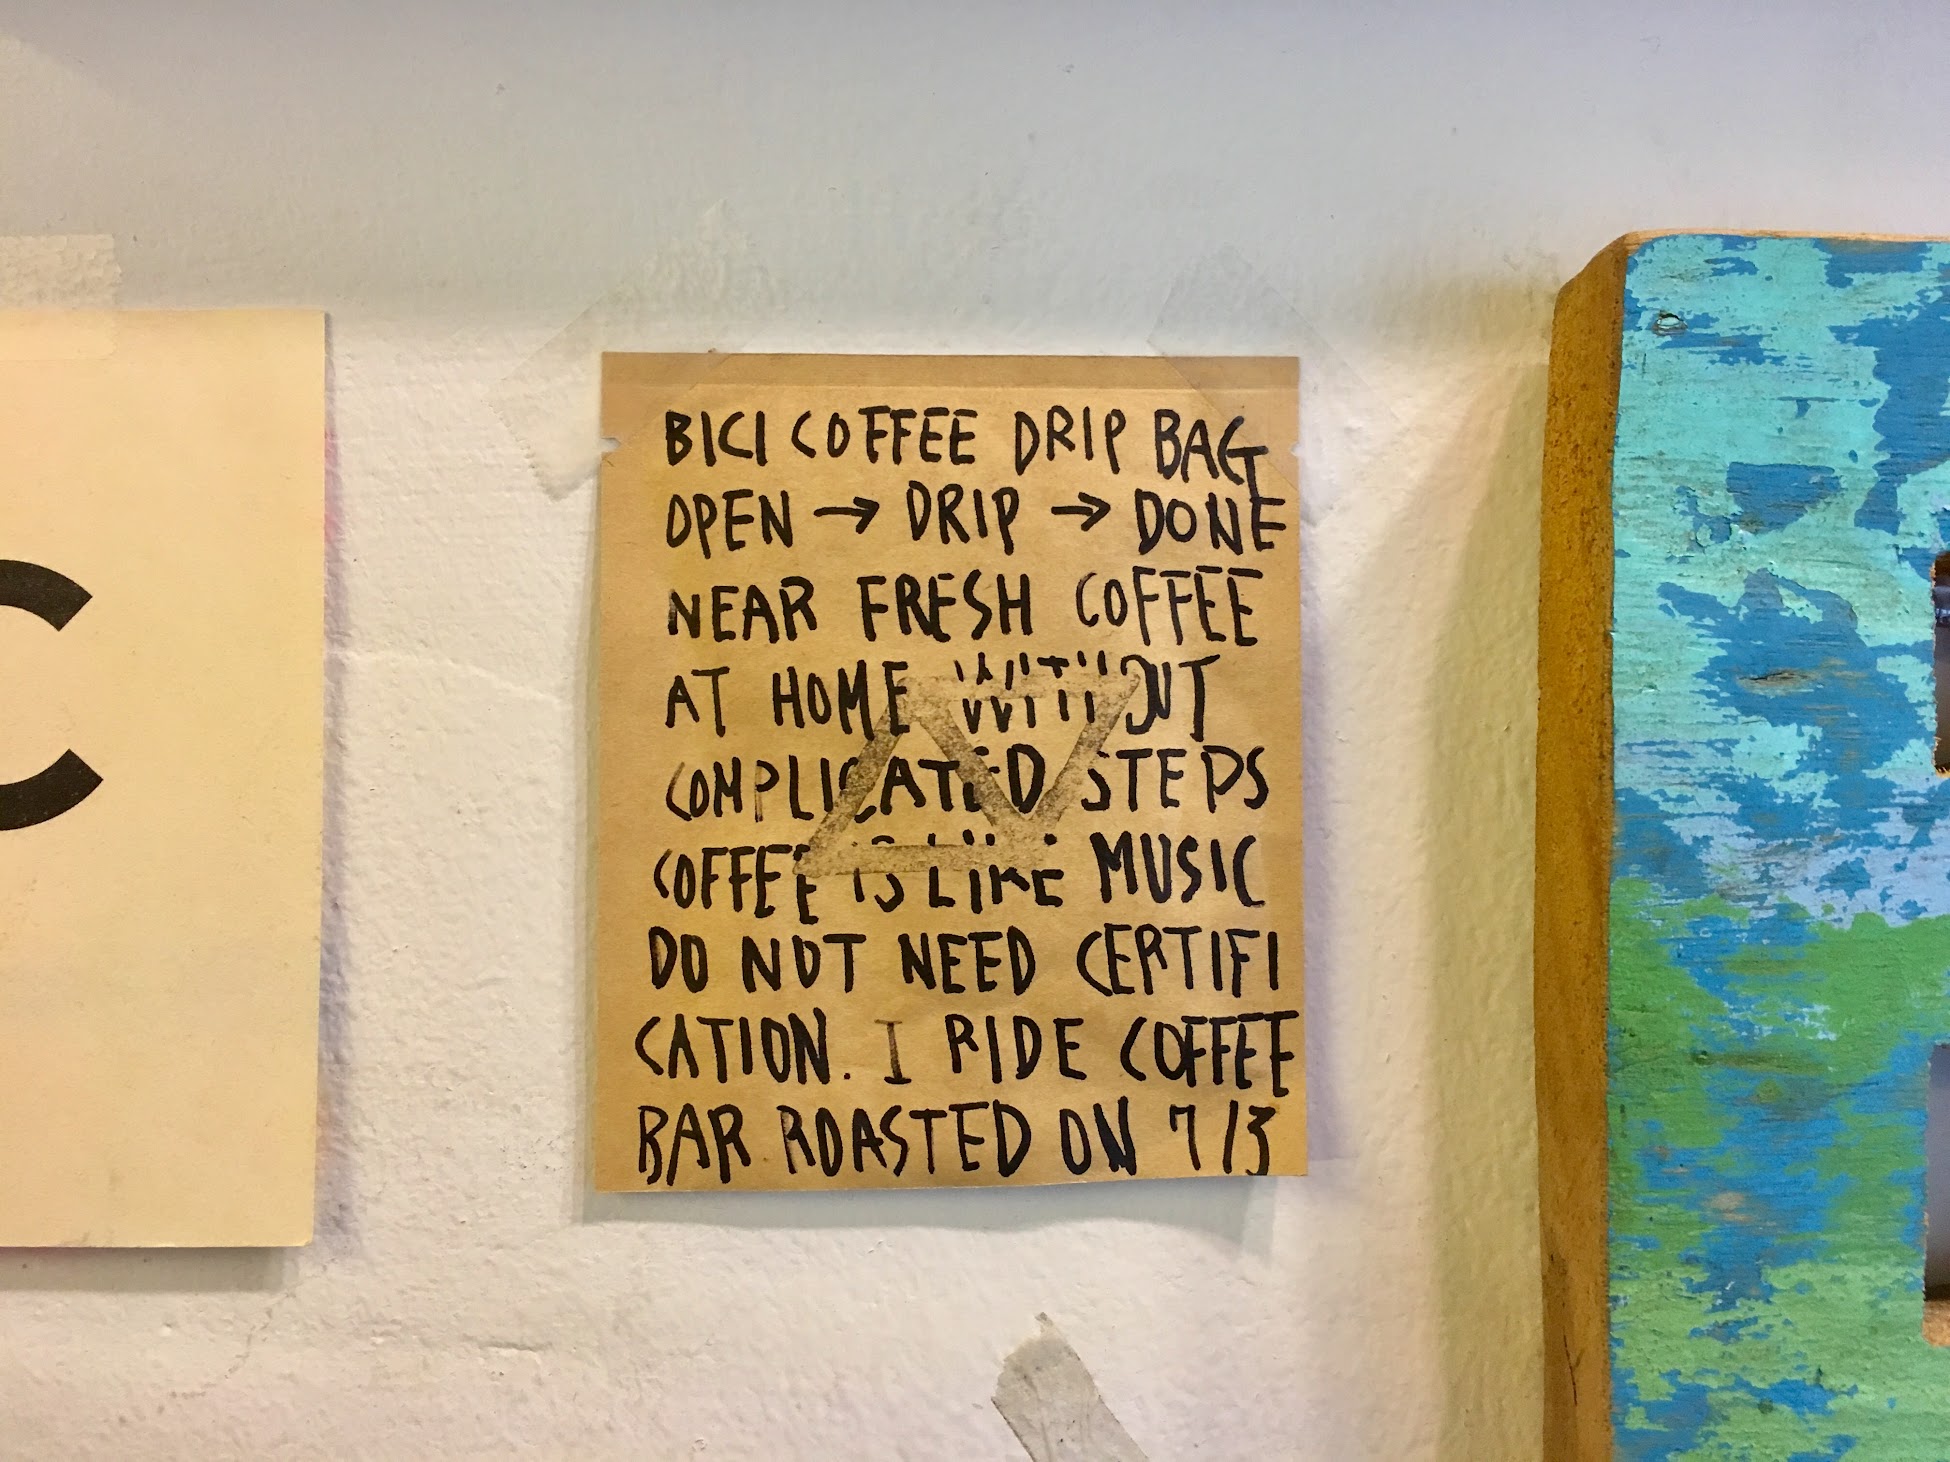 C
BICI COFFEE DRIP BAG
OPEN → DRIP → DONE
NEAR FRESH COFFEE
AT HOME WITHOUT
COMPLICATED STEPS
COFFEE IS LIKE MUSIC
DO NOT NEED CERTIFI
CATION. I RIDE COFFEE
BAR ROASTED ON 7/3